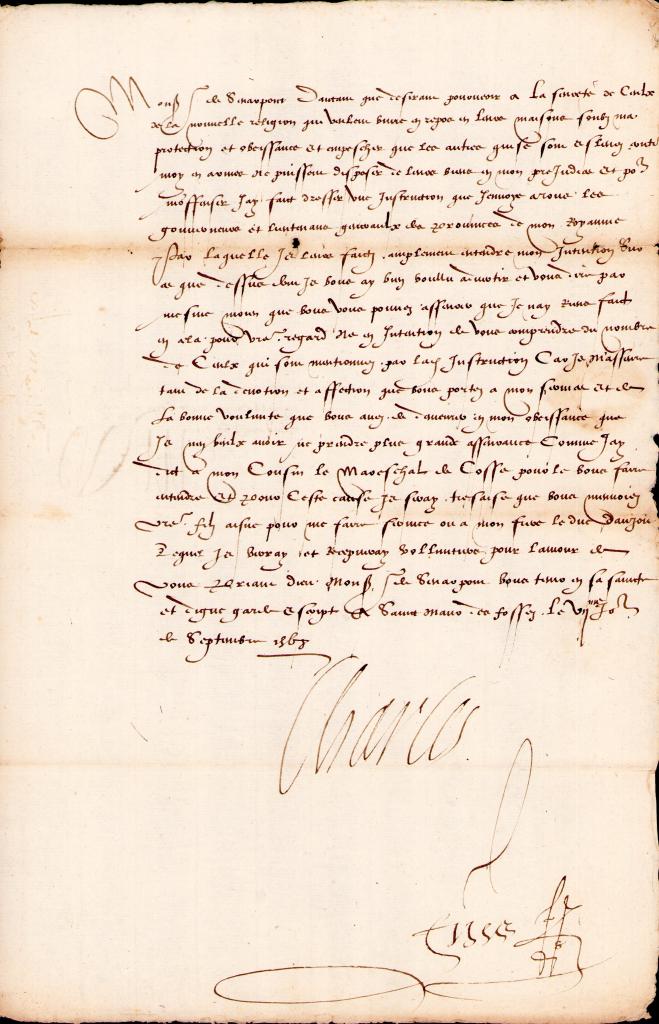 Monsr de Senarpont Daultant que desirant pourveoir a la seureté de Ceulx
de la nouvelle religion qui veulent vivre en repos en leurs maisons soubz ma
protection et obeissance Et empescher que les autres qui se sont eslevez contre
moy en armes ne puissent disposer de leurs biens en mon prejudice Et pour
m'offenser Jay fait dresser une Instruction que Jenvoye a tous les
gouverneurs et lieutenans generaulx des Provinces de mon Royaume
Par laquelle Je leur faictz amplement entendre mon Intention Sur
ce que dessus dont Je vous ay bien voullu advertir et vous dire par
mesme moien que vous vous pouvez asseurer que Je nay Riens faict
en cela pour vre regard Ne en Intention de vous comprendre du nombre
de Ceulx qui sont mentionnez par lad Instruction Car Je Massure
tant de la devotion et affection que vous portez a mon service Et de
la bonne voulunte que vous avez de demeurer en mon obeissance que
Je nen veulx avoir ne prendre plus grande asseurance Comme Jay
dict a mon Cousin le Mareschal de Cosse pour le vous faire
entendre Et pour Ceste cause Je seray tresaise que vous menvoiez
vre filz aisné pour me faire service ou a mon frere le duc Danjou
Lequel Je verray et Recepvray vollontiers pour lamour de
vous Priant dieu Monsr de Senarpont vous tenir en sa saincte
et digne garde Escript A Sainct Maur des fossez le vijme Jor
de Septembre 1568
Charles